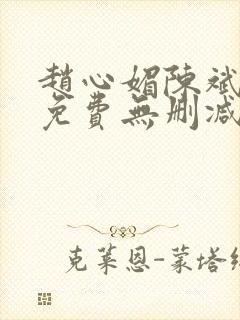 趙心媚陳斌
免費無刪減
克萊恩-蒙塔